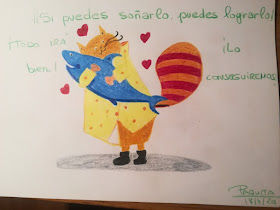 ¡¡Si puedes soñarlo, puedes lograrlo!!
¡Todo irá
bien!
¡Lo
conseguiremos!
PAQUITA